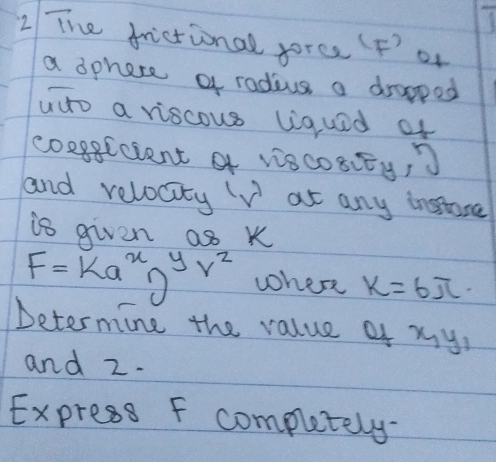 2 The frictional force 'F' of
a sphere of radius a dropped
into a viscous liquid of
coefficient of viscosity, η
and velocity 'v' at any instance
is given as K
F = Ka^x η^y v^z where K = 6π.
Determine the value of x, y,
and z.
Express F completely.